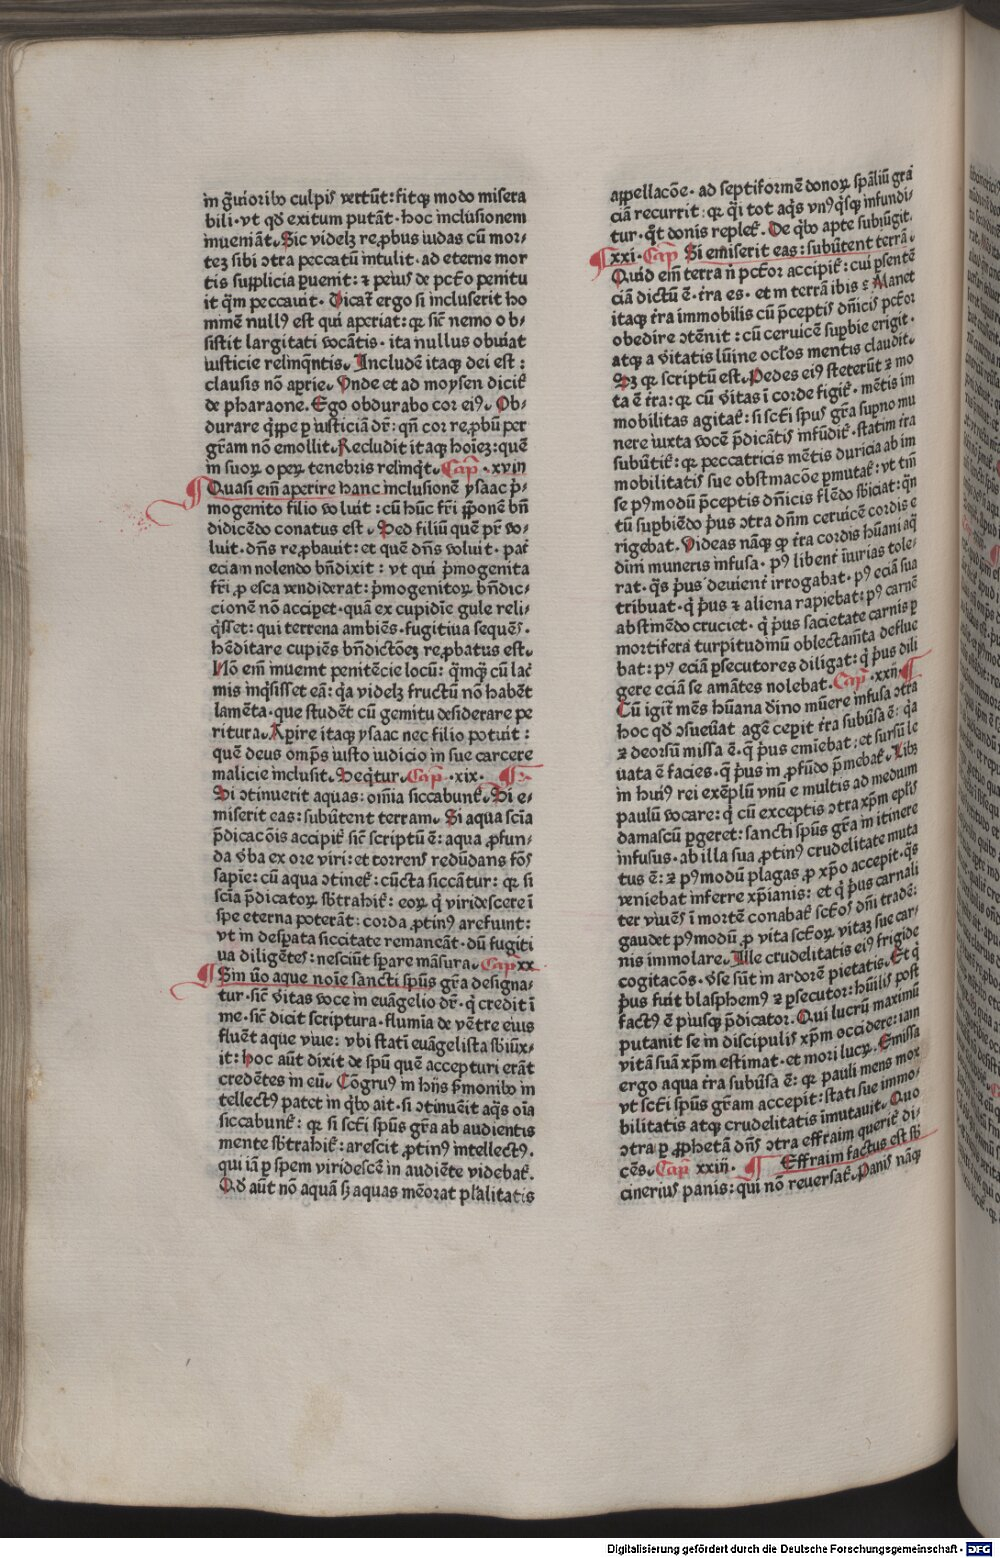 in g̃uioribꝰ culpis vertūt: fitqꝫ modo misera
bili · vt qd̕ exitum putāt · hoc inclusionem
inueniāt. Sic videlꝫ reꝓbus iudas cū mor⸗
teꝫ sibi ↄtra peccatū intulit · ad eterne mor
tis supplicia ꝑuenit: ⁊ peiꝰ de pctō penitu
it q̄m peccauit. Dicat̕ ergo si incluserit ho
minē nullꝰ est qui aperiat: qꝛ sic̄ nemo ob⸗
sistit largitati vocātis · ita nullus obuiat
iusticie relinq̄ntis. Includē itaqꝫ dei est:
clausis nō aꝑrie. Vnde et ad moysen dicit̕
de pharaone. Ego obdurabo cor eiꝰ. Ob⸗
durare q̄ꝓpe ꝑ iusticiā dr̄: qn̄ cor reꝓbū per
gr̄am nō emollit. Recludit itaqꝫ hoīeꝫ: quē
in suoꝝ opeꝝ tenebris relinqt̕. Cap̄ · xviii
Quasi em̄ aperire hanc inclusionē ysaac p̄⸗
mogenito filio voluit: cū hūc fr̄i p̄ponē bn̄
didicēdo conatus est. Sed filiū quē pr̄ vo⸗
luit · dn̄s reꝓbauit: et quē dn̄s voluit · pat̕
eciam nolendo bn̄dixit: vt qui p̄mogenita
fr̄i ꝓ esca vendiderat: p̄mogenitoꝝ bn̄dic⸗
cionē nō acciꝑet · quā ex cupidīe gule reli⸗
q̄sset: qui terrena ambiēs · fugitiua sequēs ·
hēditare cupiēs bn̄dictōeꝫ reꝓbatus est.
Nō em̄ inuenit penitēcie locū: q̄mqꝫ cū lac̕
mis inq̄sisset eā: q̄a videlꝫ fructū nō habēt
lamēta · que studēt cū gemitu desiderare pe
ritura. Aꝑire itaqꝫ ysaac nec filio potuit:
quē deus omp̄s iusto iudicio in sue carcere
malicie inclusit. Seqt̕ur. Cap̄ · xix ·
Si ↄtinuerit aquas: om̄ia siccabunt̕. Si e⸗
miserit eas: subūtent terram. Si aqua scīa
p̄dicacōis accipit̕ sic̄ scriptū ē: aqua ꝓfun⸗
da v̄ba ex ore viri: et torrens redūdans fōs
sapīe: cū aqua ↄtinet̕: cūcta siccātur: qꝛ si
scīa p̄dicatoꝝ sb̄trahit̕: eoꝝ q̄ viridescere ī
spe eterna poterāt: corda ꝓtinꝰ arefiunt:
vt in desꝑata siccitate remancāt · dū fugiti
ua diligētes: nesciūt sꝑare māsura. Cap̄ xx
Sin v̄o aque noīe sancti spūs gr̄a designa⸗
tur · sic̄ v̄itas voce in euāgelio dr̄ · q̄ credit ī
me · sic̄ dicit scriptura · flumīa de vētre eius
fluēt aque viue: vbi statī euāgelista sb̄iūx⸗
it: hoc aūt dixit de spū quē accepturi erāt
credētes in eū. Cōgruꝰ in hiis sermonibꝰ in
tellectꝰ patet in q̄bꝰ ait · si ↄtinuēit aq̄s oīa
siccabunt̕: qꝛ si sctī spūs gr̄a ab audientis
mente sb̄trahit̕: arescit ꝓtinꝰ intellectꝰ ·
qui iā ꝑ spem viridescē in audiēte videbat̕.
Qd̕ aūt nō aquā sꝫ aquas mēorat pl̄alitatis
appellacōe · ad septiformē donoꝝ spālīū gra̕
ciā recurrit: qꝛ q̄i tot aq̄s vnꝰq̄sqꝫ infundi⸗
tur · q̄t donis replet̕. De q̄bꝰ apte subiūgit.
xxi · Cap̄ Si emiserit eas: subūtent terrā.
Quid em̄ terra n̄ pctōr accipit̕: cui ꝑsentē
ciā dictū ē · tr̄a es · et in terrā ibis? Manet
itaqꝫ tr̄a immobilis cū p̄ceptis dn̄icis pctōr
obedire ↄtēnit: cū ceruicē suꝑbie erigit ·
atqꝫ a v̄itatis lūine oclōs mentis claudit.
Sꝫ qꝛ scriptū est. Pedes eiꝰ steterūt ⁊ mo
ta ē tr̄a: qꝛ cū v̄itas ī corde figit̕ · mētis im
mobilitas agitat̕: si sctī spūs gr̄a suꝑno mu
nere iuxta vocē p̄dicātis infūdit̕ · statim tr̄a
subūtit̕: qꝛ peccatricis mētis duricia ab im
mobilitatis sue obstinacōe ꝑmutat̕: vt tm̄
se pꝰmodū p̄ceptis dn̄icis flēdo sb̄iciat: q̄n
tū suꝑbiēdo p̄us ↄtra dn̄m ceruicē cordis e
rigebat. Videas nāqꝫ qꝙ tr̄a cordis hūani aq̄
diīni muneris infusa · pꝰ libent̕ īiurias tole⸗
rat · q̄s p̄us deuient̕ irrogabat · pꝰ eciā sua
tribuat · q̄ p̄us ⁊ aliena rapiebat: pꝰ carnē
abstinēdo cruciet · q̄ p̄us sacietate carnis ꝑ
mortifera turpitudinū oblectam̄ta deflue
bat: pꝰ eciā ꝑsecutores diligat: q̄ p̄us dili
gere eciā se amātes nolebat. Cap̄ · xxii ·
Cū igit̕ mēs hūana diīno mūere infusa ↄtra
hoc qd̕ ↄsueūat agē cepit tr̄a subūsa ē: q̄a
⁊ deorsū missa ē · q̄ p̄us emīebat: et sursū le
uata ē facies · q̄ p̄us in ꝓfūdo p̄mebat̕. Libꝫ
in huiꝰ rei exēplū vnū e multis ad medium
paulū vocare: q̄ cū exceptis ↄtra xp̄m epl̄is
damascū ꝑgeret: sancti spūs gr̄a in itinere
infusus · ab illa sua ꝓtinꝰ crudelitate muta
tus ē: ⁊ pꝰmodū plagas ꝓ xp̄o accepit · q̄s
veniebat inferre xp̄ianis: et q̄ p̄us carnali
ter viuēs ī mortē conabat̕ sctōs dn̄i tradē:
gaudet pꝰmodū ꝓ vita sctōꝝ vitaꝫ sue car⸗
nis immolare. Ille crudelitatis eiꝰ frigide
cogitacōs · v̄se sūt in ardorē pietatis. Et q̄
p̄us fuit blasphemꝰ ⁊ ꝑsecutor: hūilis post
factꝰ ē piusqꝫ p̄dicator. Qui lucrū maximū
putanit se in discipulis xp̄m occidere: iam
vitā suā xp̄m estimat · et mori lucꝝ. Emissa
ergo aqua tr̄a subūsa ē: qꝛ pauli mens mox
vt sctī spūs gr̄am accepit: statī sue immo⸗
bilitatis atqꝫ crudelitatis īmutauit. Quo
ↄtra ꝑ ꝓphetā dn̄s ↄtra effraim querit̕ di⸗
cēs. Cap̄ xxiii · Effraim factus est sb̄
cinerius panis: qui nō reuersat̕. Panis nāqꝫ
Digitalisierung gefördert durch die Deutsche Forschungsgemeinschaft - DFG